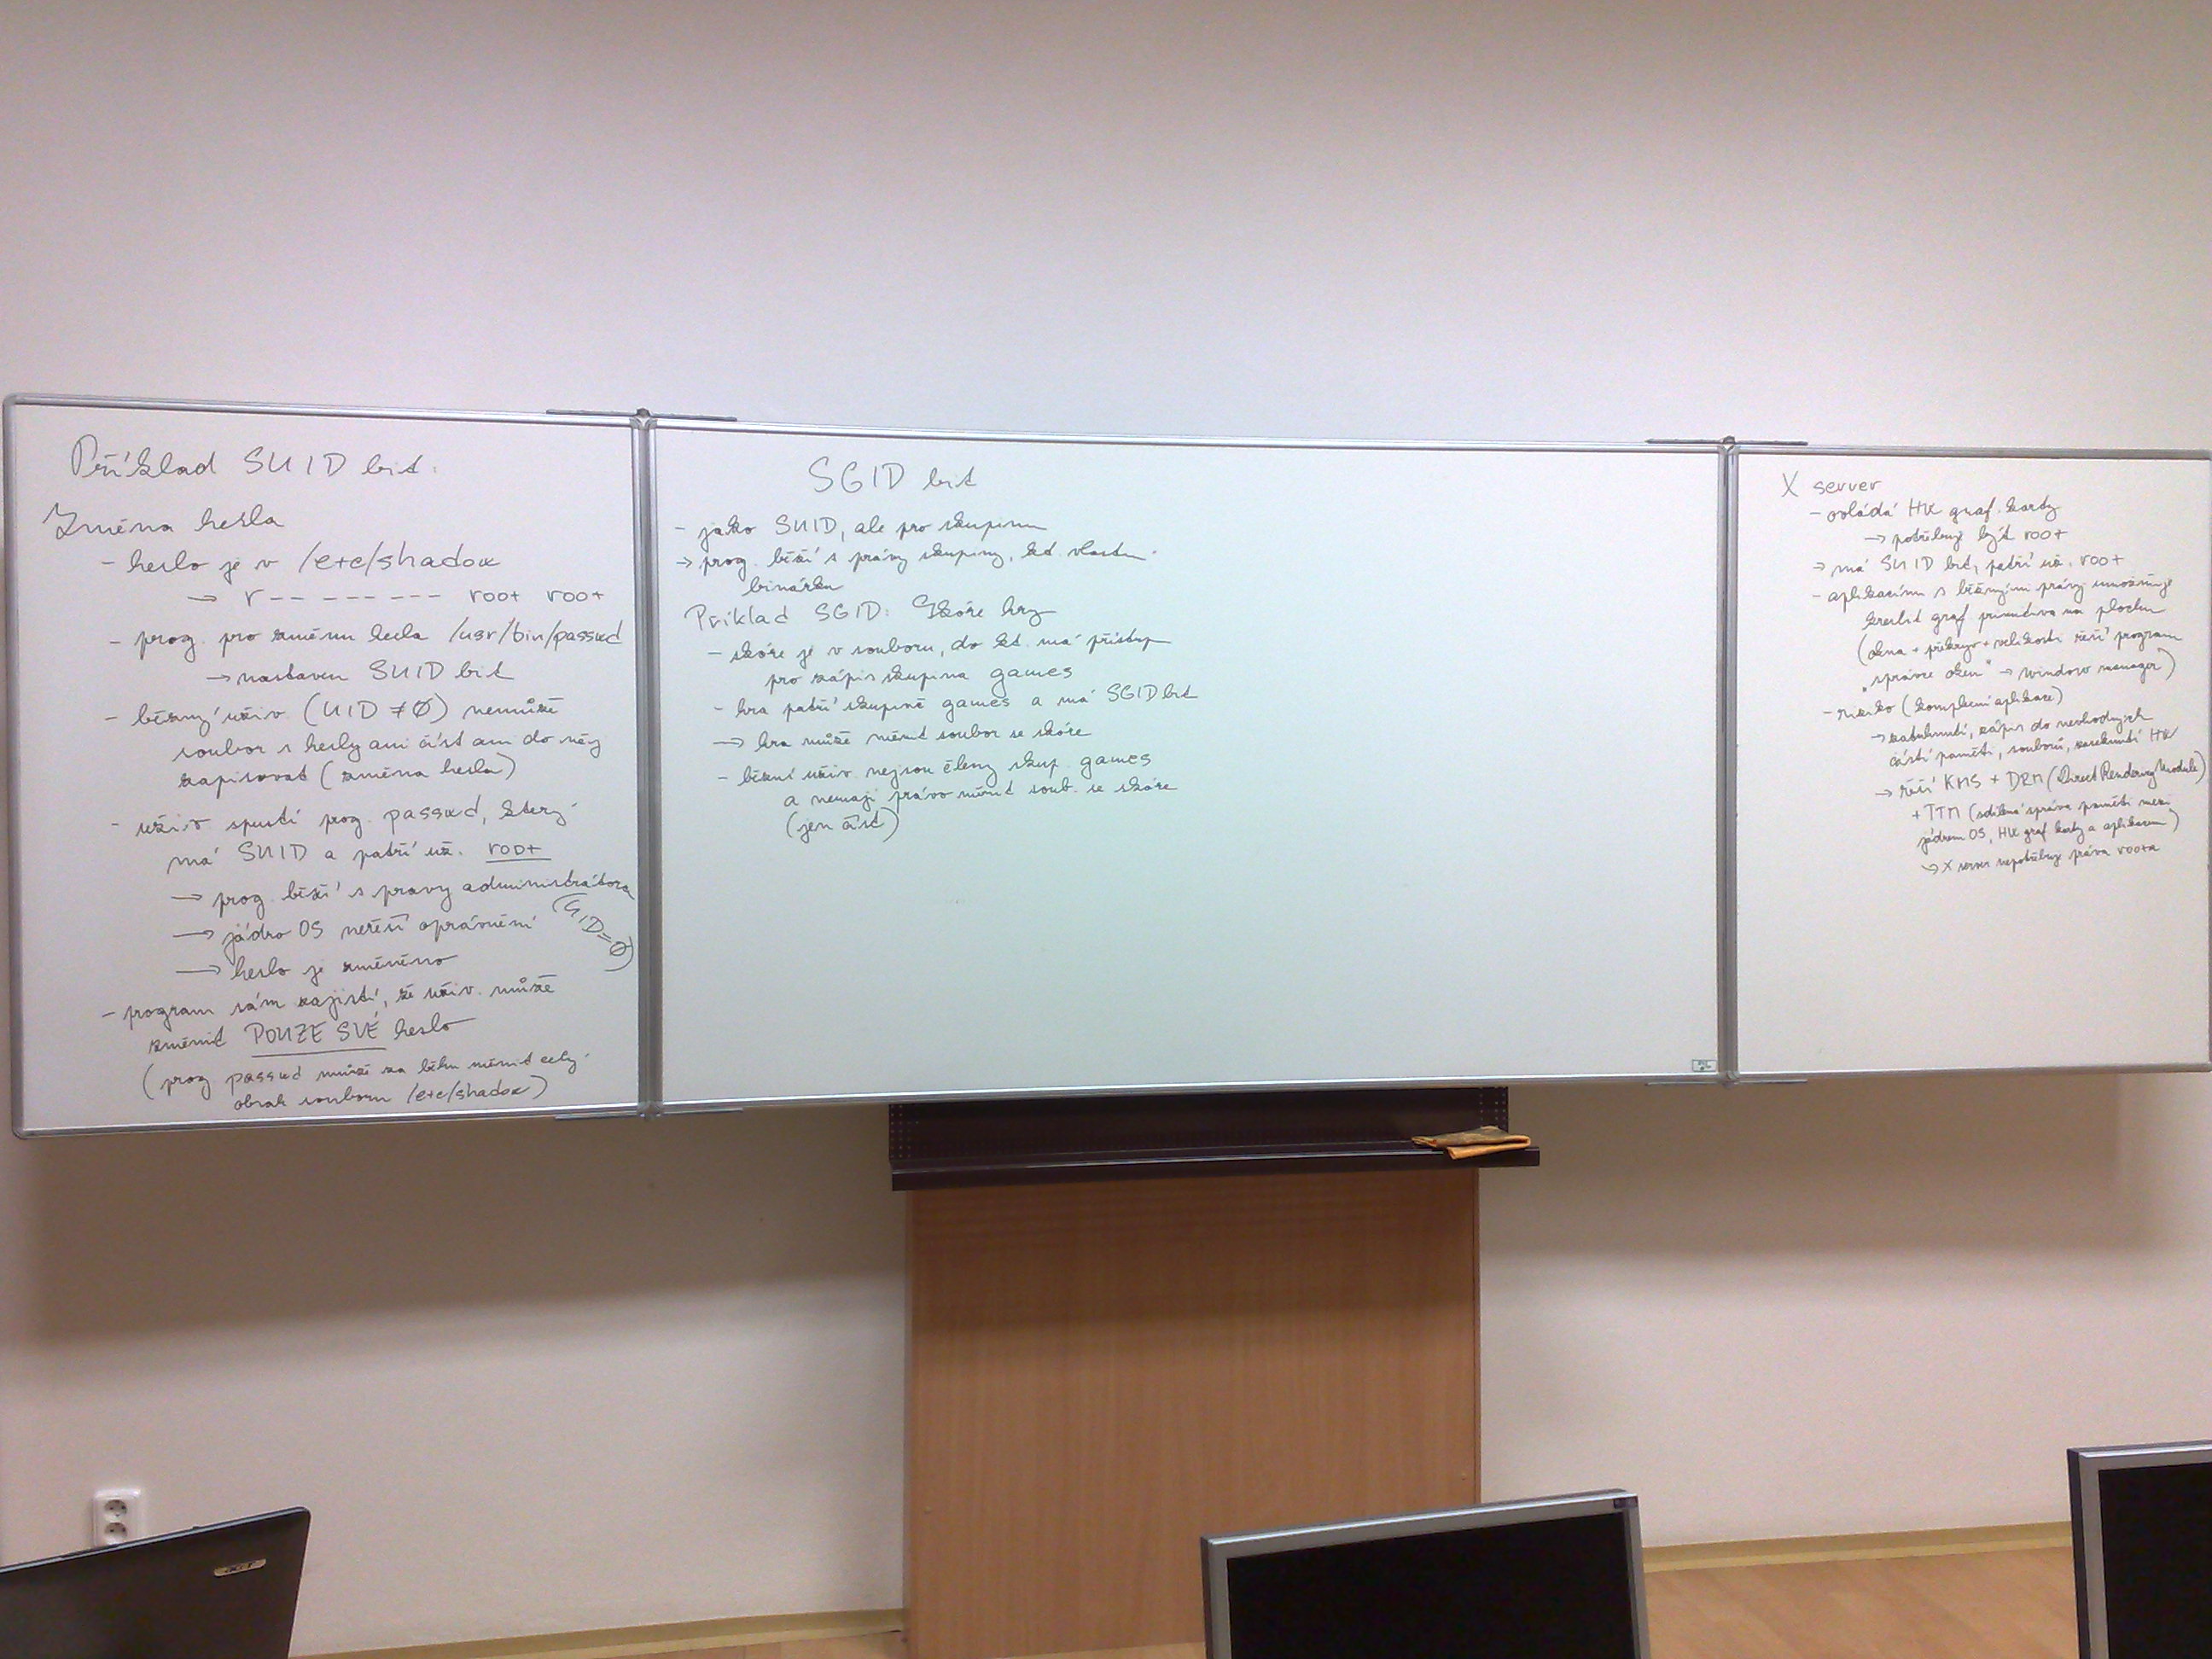 Příklad SUID bit:
Změna hesla
- heslo je v /etc/shadow
→ r-- --- --- root root
- prog. pro změnu hesla /usr/bin/passwd
→ nastaven SUID bit
- běžný uživ (UID ≠ 0) nemůže
soubor s hesly ani číst ani do něj
zapisovat (změna hesla)
- uživ spustí prog. passwd, který
má SUID a patří už. root
→ prog. běží s právy administrátora
(UID=0)
→ jádro OS neřeší oprávnění
→ heslo je změněno
- program sám zajistí, že uživ. může
změnit POUZE SVÉ heslo
(prog passwd může za běhu měnit celý
obsah souboru /etc/shadow)
SGID bit
- jako SUID, ale pro skupinu
→ prog. běží s právy skupiny, kt. vlastní
binárku
Příklad SGID: Skóre hry
- skóre je v souboru, do kt. má přístup
pro zápis skupina games
- hra patří skupině games a má SGID bit
→ hra může měnit soubor se skóre
- běžní uživ. nejsou členy skup. games
a nemají právo měnit soub. se skóre
(jen číst)
X server
- ovládá HW graf. karty
→ potřebuje být root
→ má SUID bit, patří už. root
- aplikacím s běžnými právy umožňuje
kreslit graf primitiva na plochu
(okna + překryv + velikosti řeší program
"správce oken" → window manager)
- riziko (komplexní aplikace)
→ zatuhnutí, zápis do nevhodných
částí paměti, souborů, zaseknutí HW
→ řeší KMS + DRM (Direct Rendering Module)
+ TTM (sdílená správa paměti mezi
jádrem OS, HW graf karty a aplikacemi)
↳ X server nepotřebuje práva roota